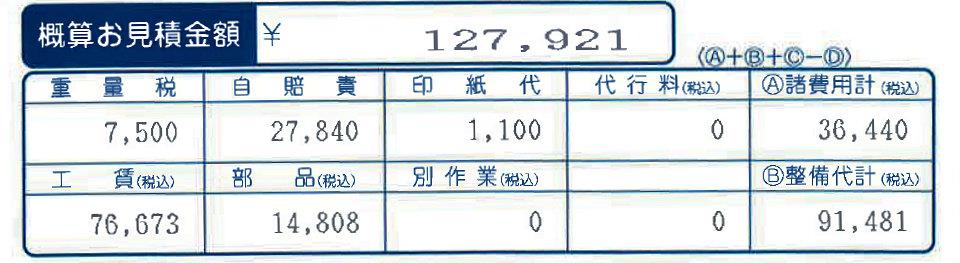 概算お見積金額 ¥ 127,921
(Ⓐ+Ⓑ+Ⓒ-Ⓓ)
重量税 自賠責 印紙代 代行料(税込) Ⓐ諸費用計(税込)
7,500 27,840 1,100 0 36,440
工賃(税込) 部品(税込) 別作業(税込) Ⓑ整備代計(税込)
76,673 14,808 0 0 91,481